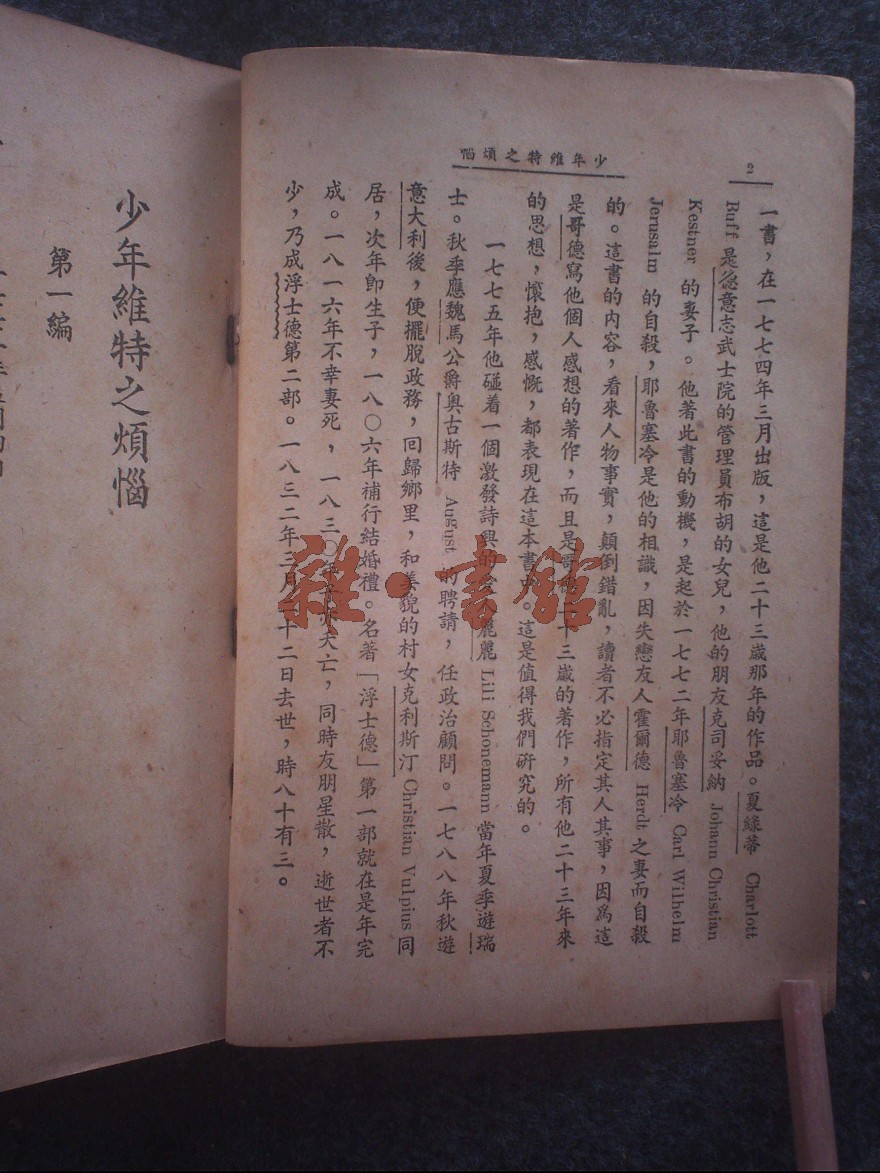 2
少年維特之煩惱
一書，在一七七四年三月出版，這是他二十三歲那年的作品。夏綠蒂 Charlott
Buff 是德意志武士院的管理員布胡的女兒，他的朋友克司妥納 Johann Christian
Kestner 的妻子。他著此書的動機，是起於一七七二年耶魯塞冷 Carl Wilhelm
Jerusalm 的自殺，耶魯塞冷是他的相識，因失戀友人霍爾德 Herdt 之妻而自殺
的。這書的內容，看來人物事實，顛倒錯亂，讀者不必指定其人其事，因爲這
是哥德寫他個人感想的著作，而且是哥德二十三歲的著作，所有他二十三年來
的思想，懷抱，感慨，都表現在這本書中。這是值得我們研究的。
一七七五年他碰着一個激發詩興的麗麗 Lili Schönemann 當年夏季遊瑞
士。秋季應魏馬公爵奧古斯特 August 的聘請，任政治顧問。一七八八年秋遊
意大利後，便擺脫政務，回歸鄉里，和美貌的村女克利斯汀 Christian Vulpius 同
居，次年卽生子，一八〇六年補行結婚禮。名著「浮士德」第一部就在是年完
成。一八一六年不幸妻死，一八三〇年夭亡，同時友朋星散，逝世者不
少，乃成浮士德第二部。一八三二年三月二十二日去世，時八十有三。
少年維特之煩惱
第一編
雜·書館